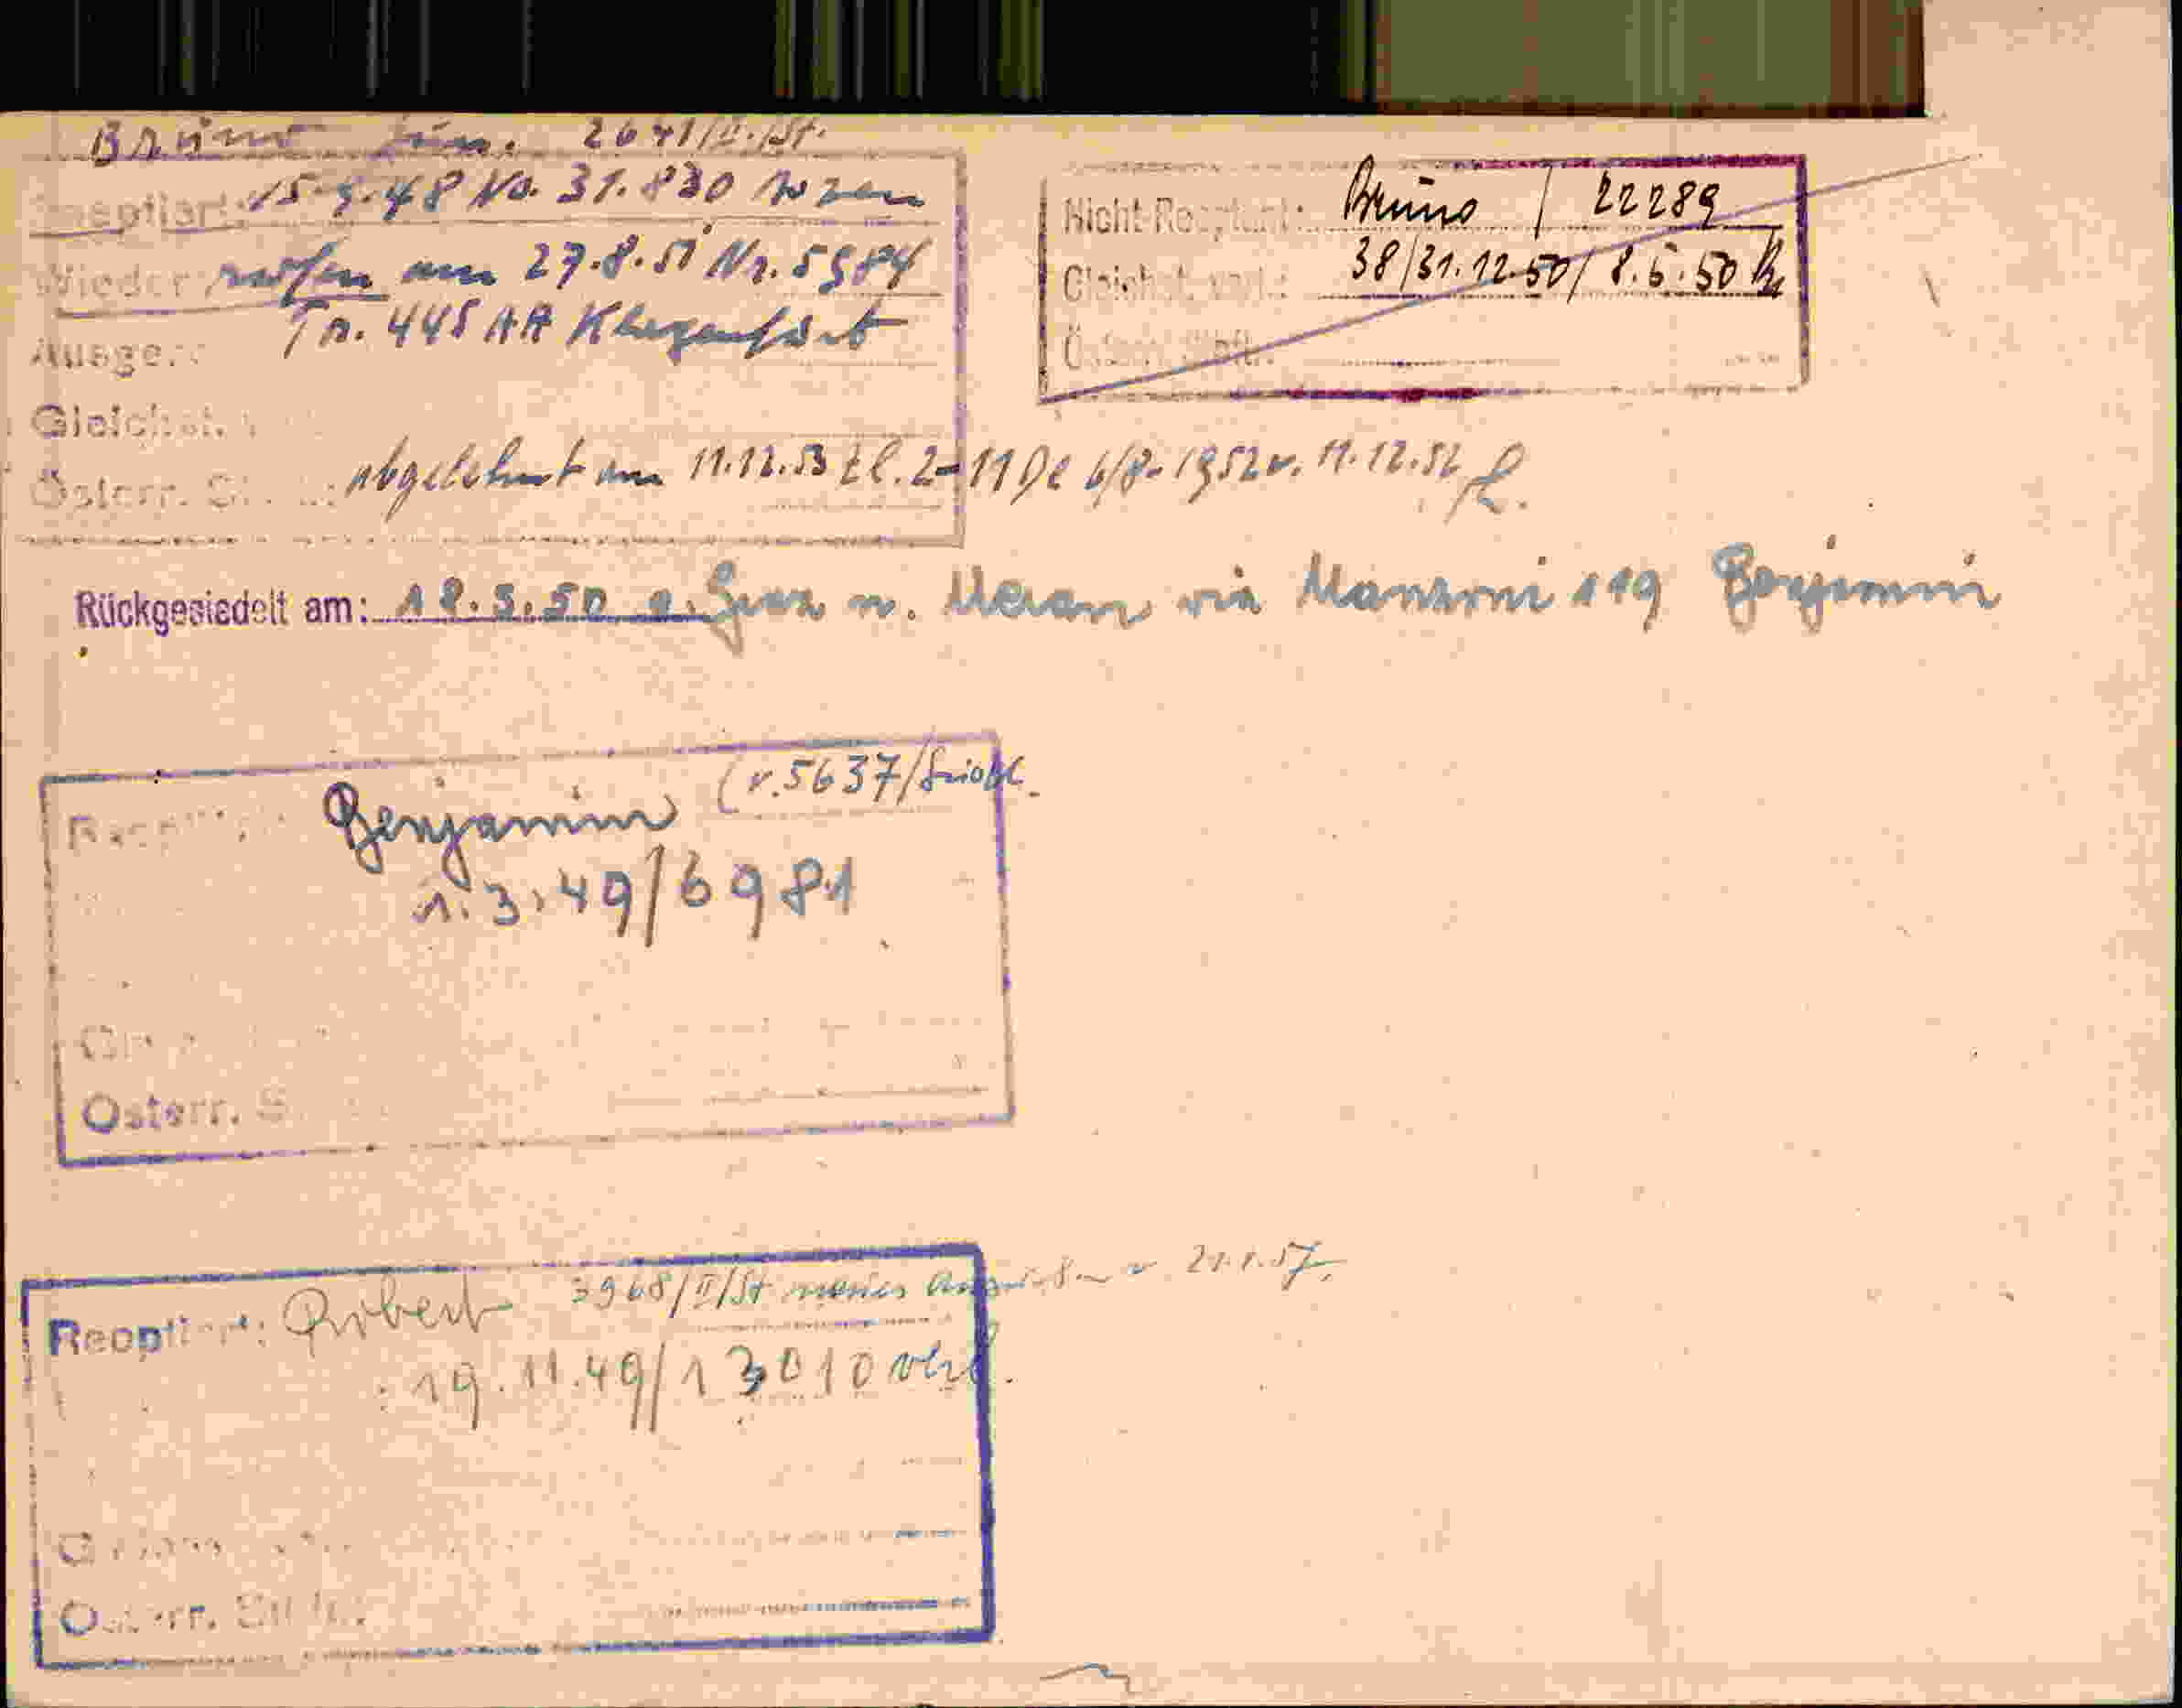 Bruno jun. 2641/II./St.
Reoptiert: 15.9.48 No. 31.830 Bozen
Wieder rufen am 27.8.51 Nr. 5984
445 AA Klagenfurt
Ausge
Gleichst. v
Österr. St abgelehnt am 11.12.53 Zl. 2-11 6/8-1952 v. 11.12.52
Nicht-Reoptant: Bruno / 22289
Gleichst. vorl.: 38/31.12.50/ 8.5.50
Österr. Stbft.:
Rückgesiedelt am: 18.5.50 v. Graz n. Meran via Manzoni 119 Benjamin
Reoptiert: Benjamin (v. 5637/
1.3.49/6981
Österr. S
Reoptiert: Robert 3968/II/St v 21.1.57
19.11.49/13010
Österr. Stbft.: